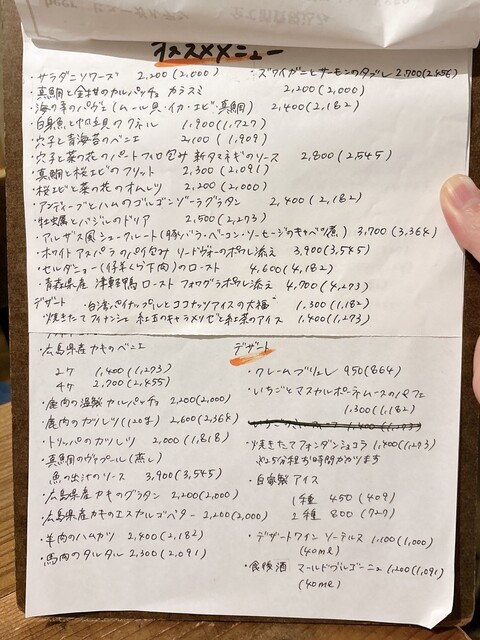 オススメメニュー
・サラダニソワーズ 2,200(2,000)
・ズワイガニとサーモンのタブレ 2,700(2,456)
・真鯛と金柑のカルパッチョ カラスミ 2,200(2,000)
・海の幸のパヴェ(ムール貝・イカ・エビ・真鯛) 2,400(2,182)
・白身魚と帆立貝のクネル 1,900(1,727)
・穴子と青海苔のベニエ 2,100(1,909)
・穴子と菜の花のパートフィロ包み 新タマネギのソース 2,800(2,545)
・真鯛と桜エビのフリット 2,300(2,091)
・桜エビと菜の花のオムレツ 2,200(2,000)
・アンディーブとハムのゴルゴンゾーラグラタン 2,400(2,182)
・牡蠣とバジルのドリア 2,500(2,273)
・アルザス風シュークルート(豚バラ・ベーコン・ソーセージのキャベツ煮) 3,700(3,364)
・ホワイトアスパラのパイ包み リードヴォーのポワレ添え 3,900(3,545)
・セルダニョー(仔羊くら下肉)のロースト 4,600(4,182)
・青森県産 津軽鴨ロースト フォアグラポワレ添え 4,700(4,273)
デザート ・台湾パイナップルとココナッツアイスの大福 1,300(1,182)
・焼きたてフィナンシェ 紅玉のキャラメリゼと紅茶のアイス 1,400(1,273)
・広島県産カキのベニエ
2ケ 1,400(1,273)
4ケ 2,700(2,455)
・鹿肉の温製カルパッチョ 2,200(2,000)
・鹿肉のカツレツ(120g) 2,600(2,364)
・トリッパのカツレツ 2,000(1,818)
・真鯛のヴァプール(蒸し)
魚の出汁のソース 3,900(3,545)
・広島県産カキのグラタン 2,200(2,000)
・広島県産カキのエスカルゴバター 2,200(2,000)
・羊肉のハムカツ 2,400(2,182)
・馬肉のタルタル 2,300(2,091)
デザート
・クレームブリュレ 950(864)
・いちごとマスカルポーネムースのパフェ
1,300(1,182)
1,400(1,273)
・焼きたてフォンダンショコラ 1,400(1,273)
※25分程お時間かかります
・自家製アイス
1種 450(409)
2種 800(727)
・デザートワイン ソーテルヌ 1,100(1,000)
(40ml)
・食後酒 マールドブルゴーニュ 1,200(1,091)
(40ml)